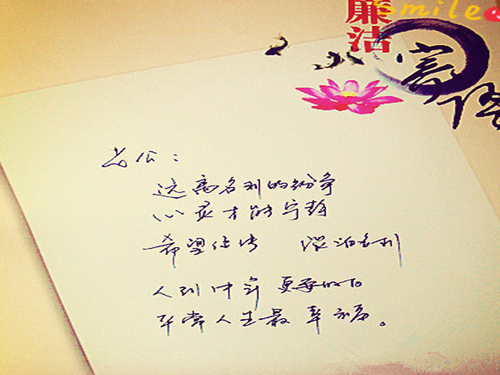 Smile
廉洁
老公：
远离名利的纷争
心灵才能宁静
希望 淡泊名利
人到中年 更要明白
平常人生最幸福。